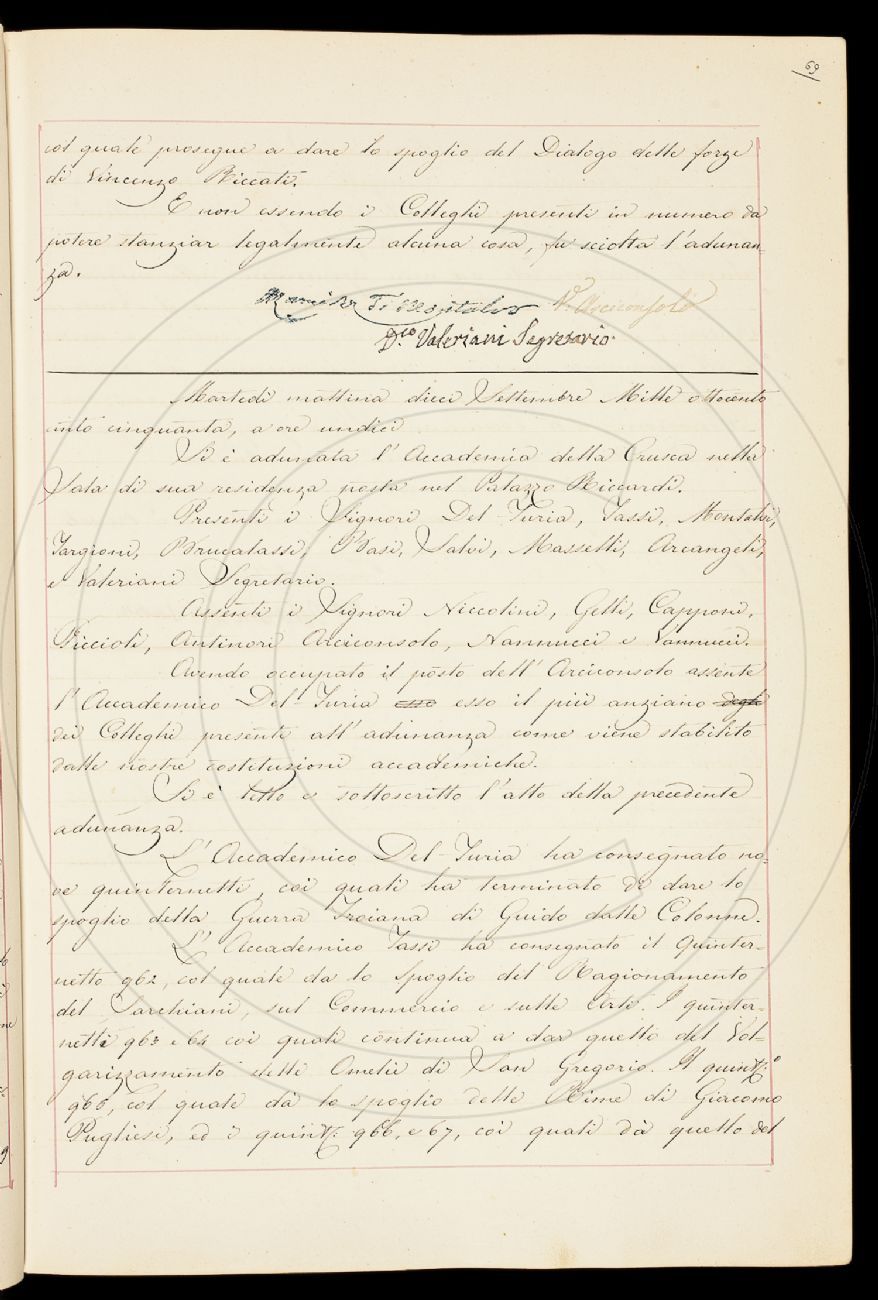 69
col quale prosegue a dare lo spoglio del Dialogo delle forze
di Vincenzo Riccati.
E non essendo i Colleghi presenti in numero da
potere stanziar legalmente alcuna cosa, fu sciolta l'adunan-
za.
V.º Arciconsolo
D.co Valeriani Segretario.
Martedì mattina dieci Settembre Mille ottocento
cinquanta, a ore undici
Si è adunata l'Accademia della Crusca nella
Sala di sua residenza posta nel Palazzo Riccardi.
Presenti i Signori Del-Furia, Tassi, Montalvi,
Targioni, Brucalassi, Basi, Salvi, Masselli, Arcangeli,
e Valeriani Segretario.
Assenti i Signori Niccolini, Gelli, Capponi,
Piccioli, Antinori Arciconsolo, Nannucci e Vannucci.
Avendo occupato il posto dell'Arciconsolo assente
l'Accademico Del-Furia esso esso il più anziano degli
dei Colleghi presenti all'adunanza come viene stabilito
dalle nostre costituzioni accademiche.
Si è letto e sottoscritto l'atto della precedente
adunanza.
L'Accademico Del-Furia ha consegnato no-
ve quinternetti, coi quali ha terminato di dare lo
spoglio della Guerra Troiana di Guido dalle Colonne.
L'Accademico Tassi ha consegnato il Quinter-
netto 962, col quale da lo Spoglio del Ragionamento
del Sarchiani, sul Commercio e sulle Arti. I quinter-
netti 963 e 64 coi quali continua a dar quello del Vol-
garizzamento delle Omelie di San Gregorio. Il quint.º
965, col quale dà lo spoglio delle Rime di Giacomo
Pugliesi, ed i quint.i 966, e 67, coi quali dà quello del